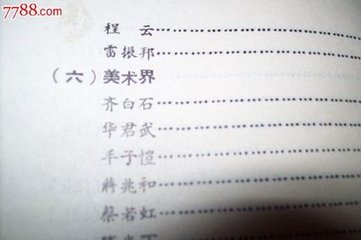 7788.com
程 云……………………
雷振邦……………………
(六)美术界
齐白石……………………
华君武……………………
丰子愷……………………
蔣兆和……………………
蔡若虹……………………